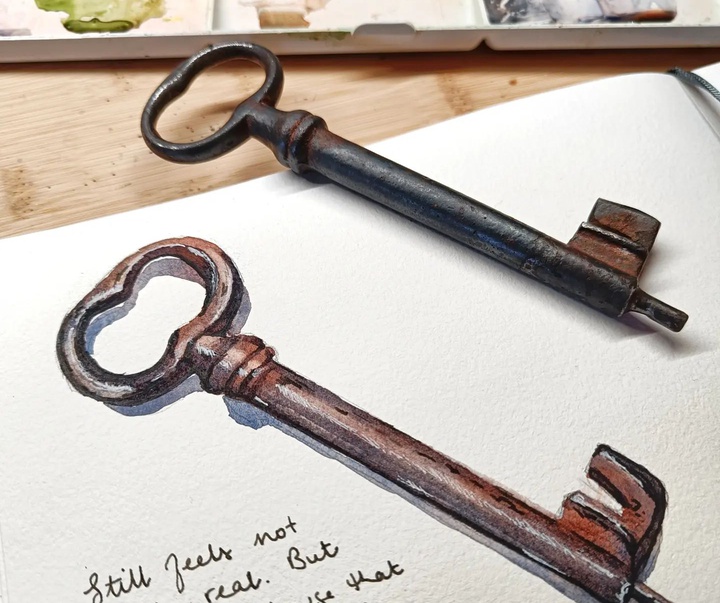 Still feels not
real. But
that